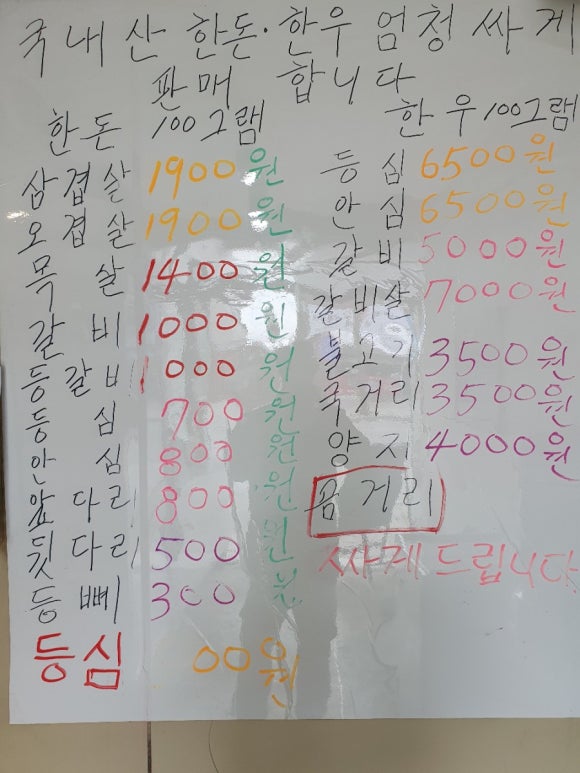 국내산 한돈·한우 엄청 싸게
판매 합니다
한돈 100그램
삼겹살 1900원
오겹살 1900원
목살 1400원
갈비 1000원
등갈비 1000원
등심 700원
안심 800원
앞다리 800원
뒷다리 500원
등뼈 300원
등심 00원
한우 100그램
등심 6500원
안심 6500원
갈비 5000원
갈비살 7000원
불고기 3500원
국거리 3500원
양지 4000원
곰거리
싸게 드립니다